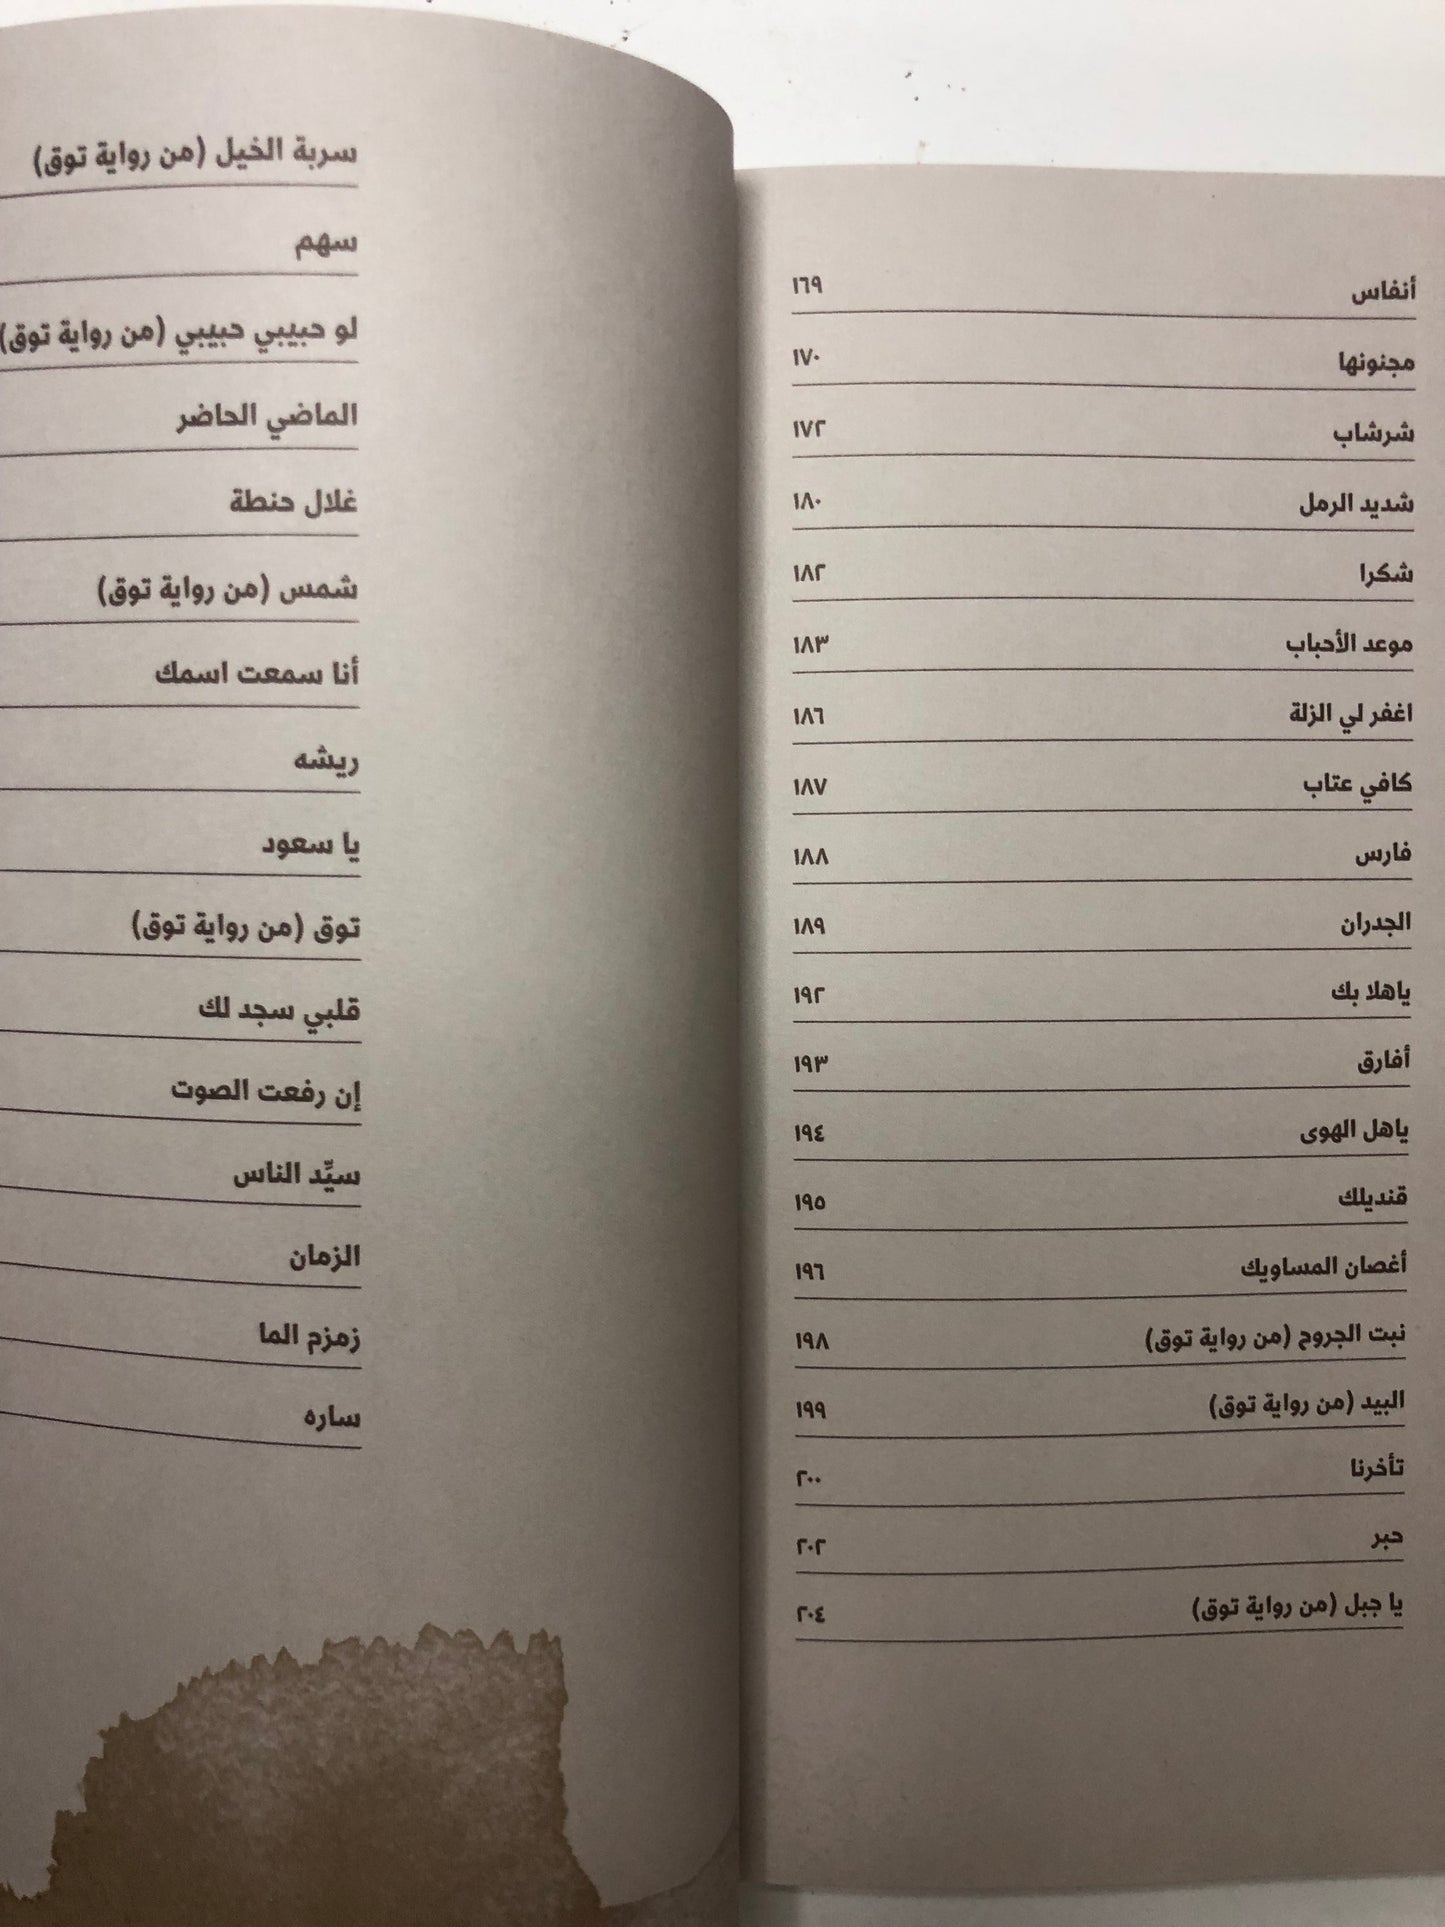 أنفاس ١٦٩
مجنونها ١٧٠
شرشاب ١٧٢
شديد الرمل ١٨٠
شكرا ١٨٢
موعد الأحباب ١٨٣
اغفر لي الزلة ١٨٦
كافي عتاب ١٨٧
فارس ١٨٨
الجدران ١٨٩
ياهلا بك ١٩٢
أفارق ١٩٣
ياهل الهوى ١٩٤
قنديلك ١٩٥
أغصان المساويك ١٩٦
نبت الجروح (من رواية توق) ١٩٨
البيد (من رواية توق) ١٩٩
تأخرنا ٢٠٠
حبر ٢٠٢
يا جبل (من رواية توق) ٢٠٤
سربة الخيل (من رواية توق)
سهم
لو حبيبي حبيبي (من رواية توق)
الماضي الحاضر
غلال حنطة
شمس (من رواية توق)
أنا سمعت اسمك
ريشه
يا سعود
توق (من رواية توق)
قلبي سجد لك
إن رفعت الصوت
سيِّد الناس
الزمان
زمزم الما
ساره